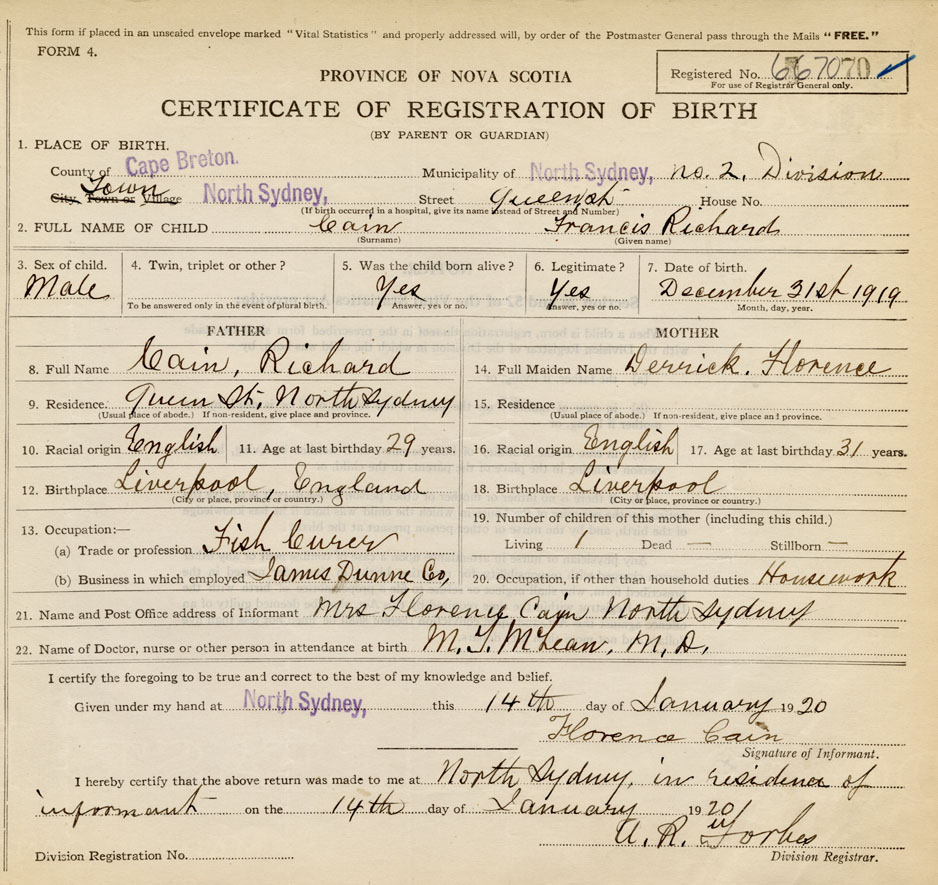 This form if placed in an unsealed envelope marked "Vital Statistics" and properly addressed will, by order of the Postmaster General pass through the Mails "FREE."
FORM 4.
Registered No. 667070
For use of Registrar General only.
PROVINCE OF NOVA SCOTIA
CERTIFICATE OF REGISTRATION OF BIRTH
(BY PARENT OR GUARDIAN)
1. PLACE OF BIRTH.
County of Cape Breton. Municipality of North Sydney, No. 2, Division
Town
City, Town or Village North Sydney, Street Queen St House No.
(If birth occurred in a hospital, give its name instead of Street and Number)
2. FULL NAME OF CHILD Cain Francis Richard
(Surname) (Given name)
3. Sex of child. 4. Twin, triplet or other? 5. Was the child born alive? 6. Legitimate? 7. Date of birth.
Male Yes Yes December 31st 1919
To be answered only in the event of plural birth. Answer, yes or no. Answer, yes or no. Month, day, year.
FATHER MOTHER
8. Full Name Cain, Richard 14. Full Maiden Name Derrick. Florence
9. Residence. Queen St, North Sydney 15. Residence
(Usual place of abode.) If non-resident, give place and province. (Usual place of abode.) If non-resident, give place and province.
10. Racial origin English 11. Age at last birthday 29 years. 16. Racial origin English 17. Age at last birthday 31 years.
12. Birthplace Liverpool, England 18. Birthplace Liverpool
(City or place, province or country.) (City or place, province or country.)
13. Occupation:— 19. Number of children of this mother (including this child.)
(a) Trade or profession Fish Curer Living 1 Dead — Stillborn —
(b) Business in which employed James Dunne Co, 20. Occupation, if other than household duties Housework
21. Name and Post Office address of Informant Mrs Florence Cain North Sydney
22. Name of Doctor, nurse or other person in attendance at birth M. T. McLean, M. D.
I certify the foregoing to be true and correct to the best of my knowledge and belief.
Given under my hand at North Sydney, this 14th day of January 1920
Florence Cain
Signature of Informant.
I hereby certify that the above return was made to me at North Sydney, in residence of
informant on the 14th day of January 1920
A. R. Forbes
Division Registration No. Division Registrar.